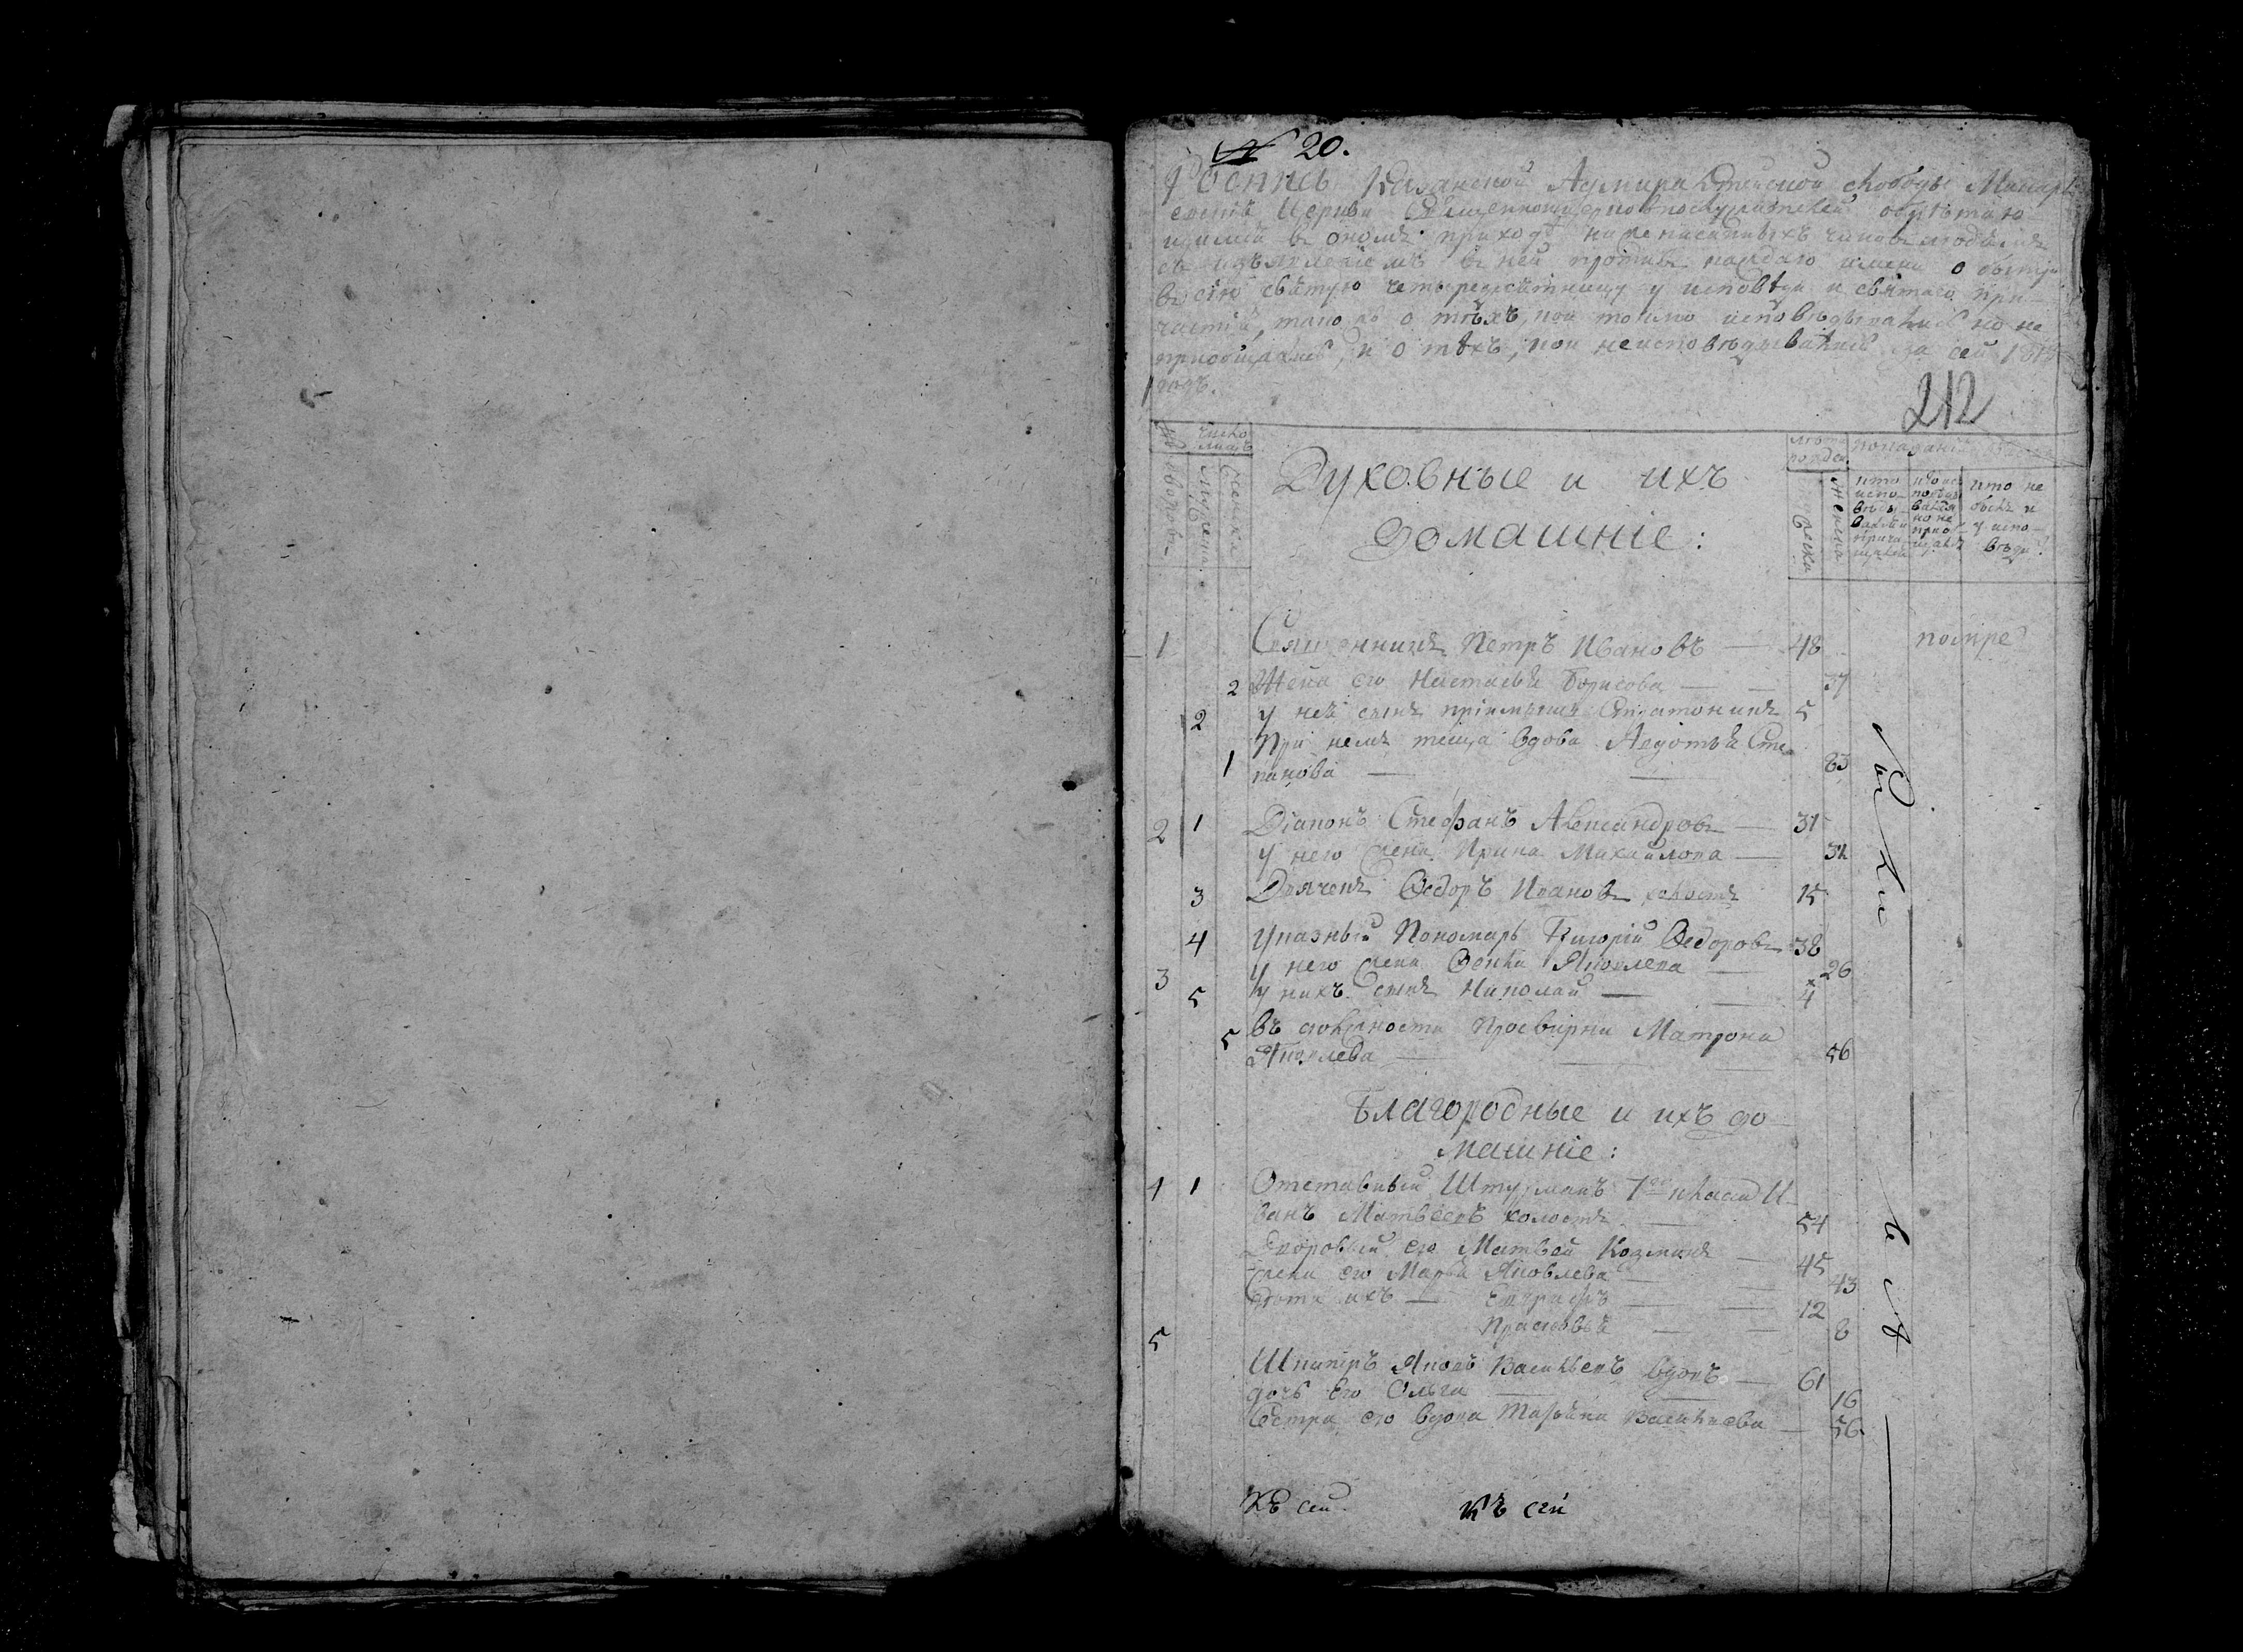 № 20.
Роспись Казанской Адмиралтейской слободы Макарь
евской Церкви священноцерковнослужителей обрѣтаю
щимся въ ономъ приходѣ нижеписанныхъ чиновъ людямъ
съ изъявленіемъ въ ней противъ каждаго имени о бытіи
въ сію святую четыредесятницу у исповѣди и святаго при
частія, тако жъ о тѣхъ, кои токмо исповѣдывались но не
пріобщались, и о тѣхъ, кои неисповѣдывались за сей
годъ.
212
Число
лицъ
Лѣта
рожде
Показаніе
дворовъ
мужеска
женска
мужеска
женска
кто
испо
вѣды
вался и
прича
щался
кто ис
повѣды
вался
но не
прио
щался
кто не
былъ и
у испо
вѣди
Духовные и ихъ
домашніе:
1 Священникъ Петръ Ивановъ — 48 помре
2 Жена его Настасья Борисова — 37
2 У неё сынъ пріемышъ 5
При немъ теща вдова Авдотья Сте
1 панова — 83
2 1 Діаконъ Стефанъ Александровъ — 31
У него жена Ирина Михайлова —
3 Дьячекъ Ѳедоръ Ивановъ холостъ 15
4 Указный Пономарь Григорій Ѳедоровъ 38
У него жена Яковлева — 26
3 5 У нихъ сынъ Николай — 4
въ Просвирня Матрона
5 Яковлева — 56
Были
Благородные и ихъ до
машніе:
1 1 Отставный Штурманъ 7го класа И
ванъ Матвеевъ холостъ — 54
Дворовый его Матвей Козминъ — 45
Жена его Марья Яковлева — 43
Дѣти ихъ — — 12
Прасковья — 8
5
Шкиперъ Яковъ Васильевъ вдовъ — 61
дочь Его Ольга — 16
Сестра его вдова Татьяна Васильева — 56
всѣ
Къ сей Къ сей